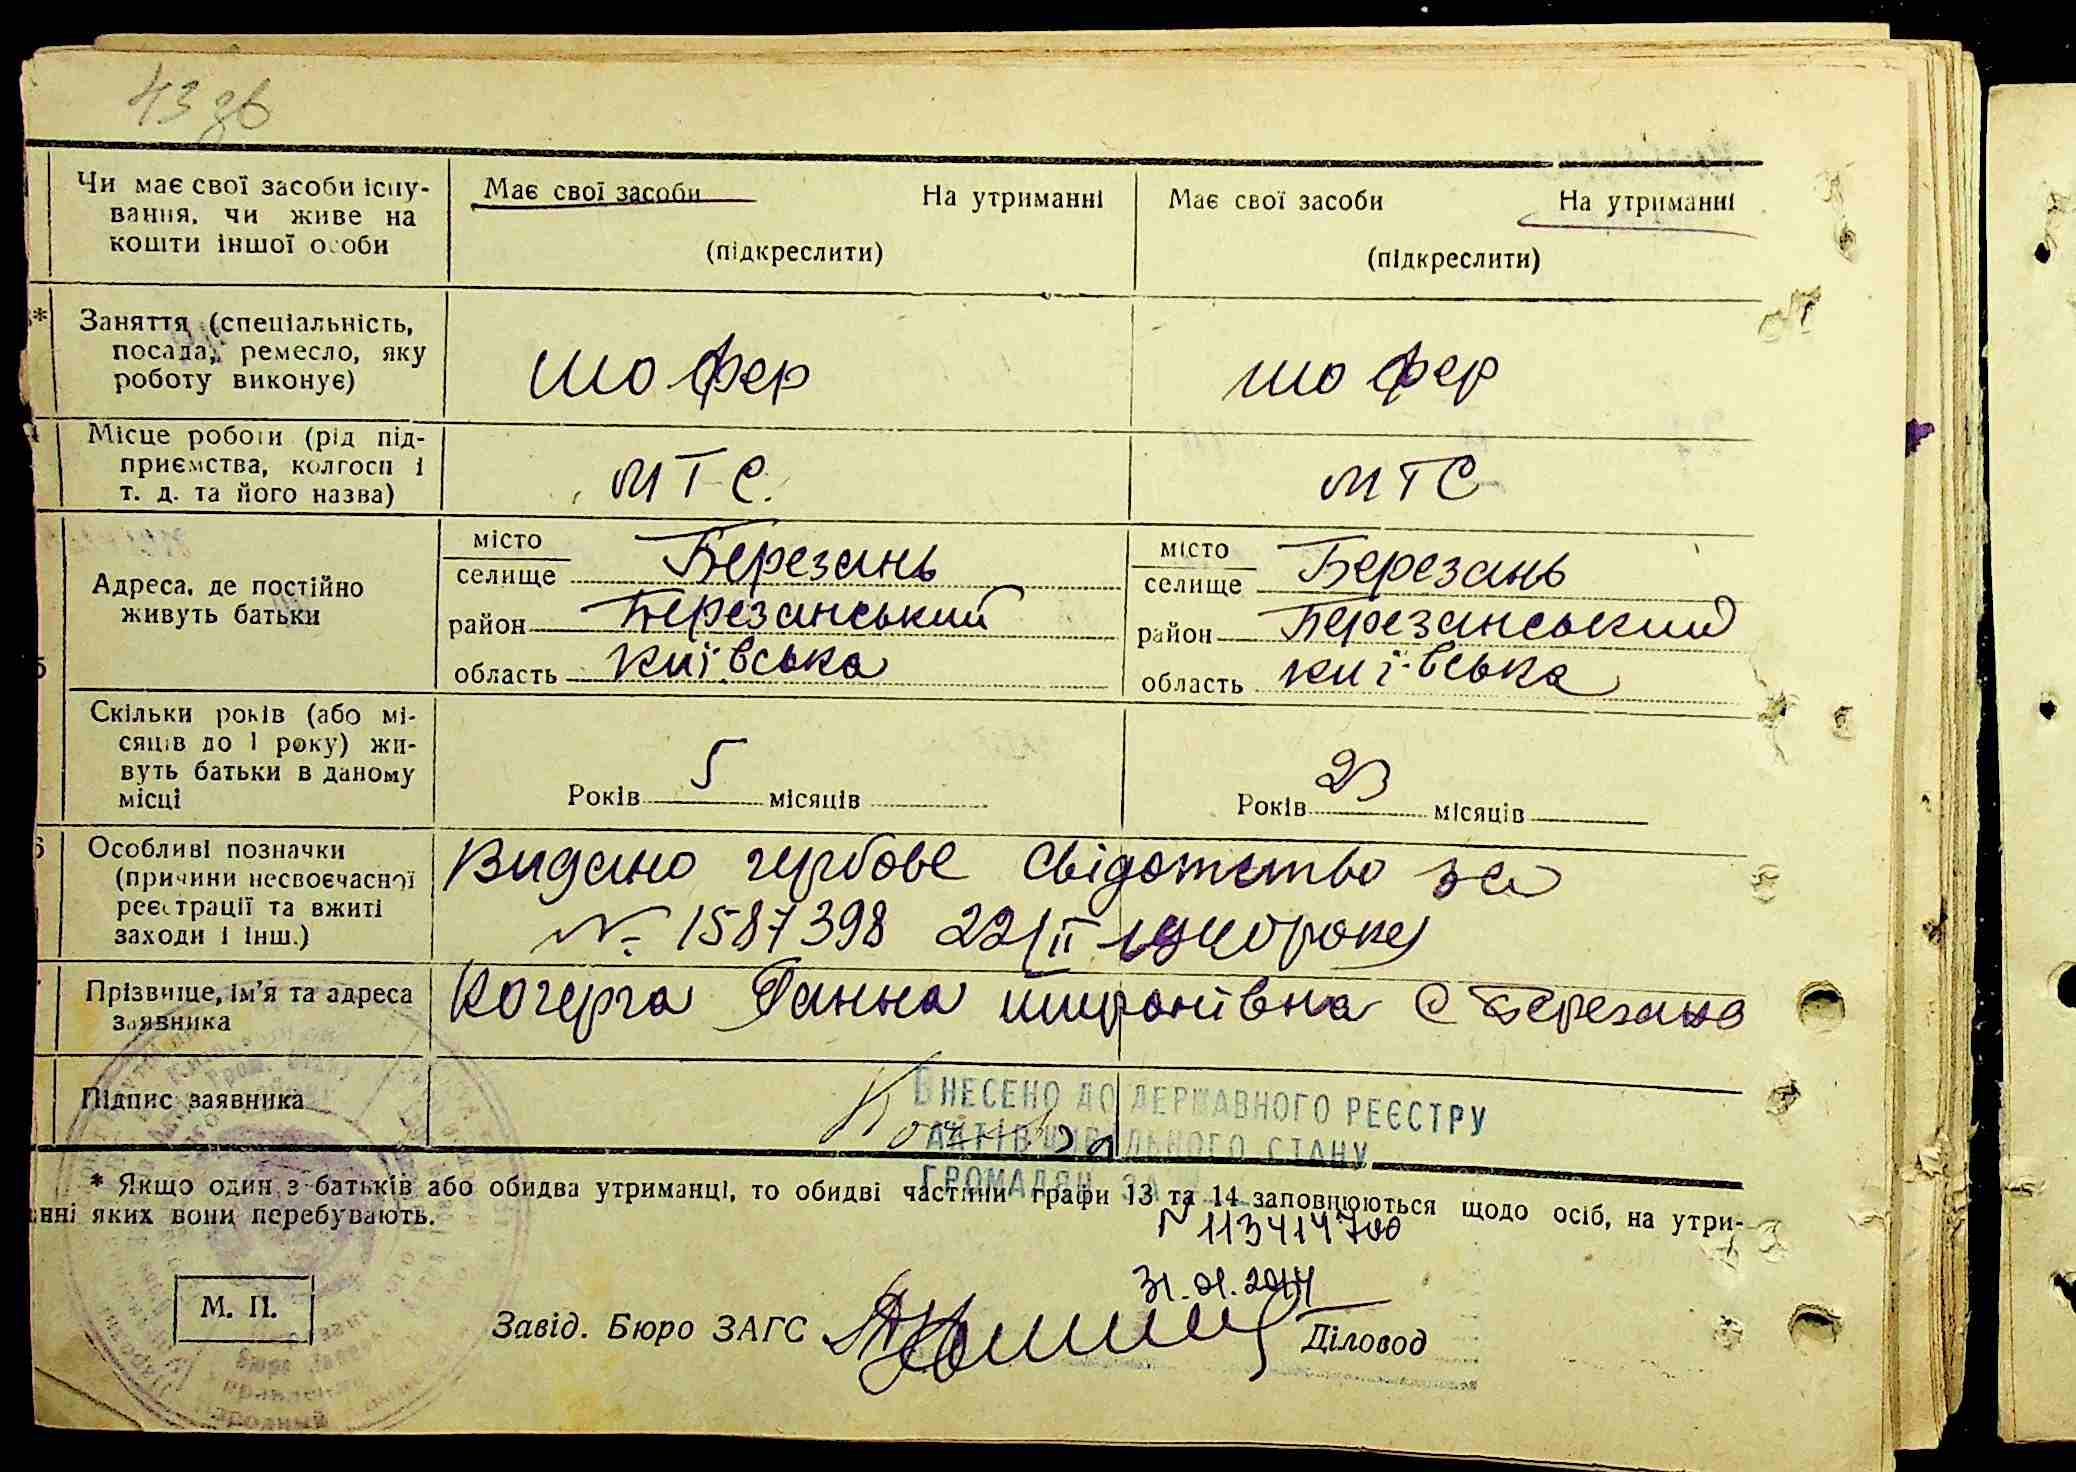 43 зв
Чи має свої засоби існу-
вання, чи живе на
кошти іншої особи
Має свої засоби На утриманні
(підкреслити)
Має свої засоби На утриманні
(підкреслити)
Заняття (спеціальність,
посада, ремесло, яку
роботу виконує)
шофер
шофер
Місце роботи (рід під-
приємства, колгосп і
т. д. та його назва)
МТС.
МТС
Адреса, де постійно
живуть батьки
місто
селище Березань
район Березанський
область Київська
місто
селище Березань
район Березанський
область Київська
Скільки років (або мі-
сяців до 1 року) жи-
вуть батьки в даному
місці
Років 5 місяців
Років 23 місяців
6 Особливі позначки
(причини несвоєчасної
реєстрації та вжиті
заходи і інш.)
Видано гербове свідотство за
№ 1587398 22/II
Прізвище, ім'я та адреса
заявника
Кочерга Ганна с Березань
Підпис заявника
ВНЕСЕНО ДО ДЕРЖАВНОГО РЕЄСТРУ
АКТІВ ЦИВІЛЬНОГО СТАНУ
ГРОМАДЯН ЗА
* Якщо один з батьків або обидва утриманці, то обидві частини графи 13 та 14 заповнюються щодо осіб, на утри-
анні яких вони перебувають.
N 113414700
31.01.2011
М. П.
Завід. Бюро ЗАГС Діловод